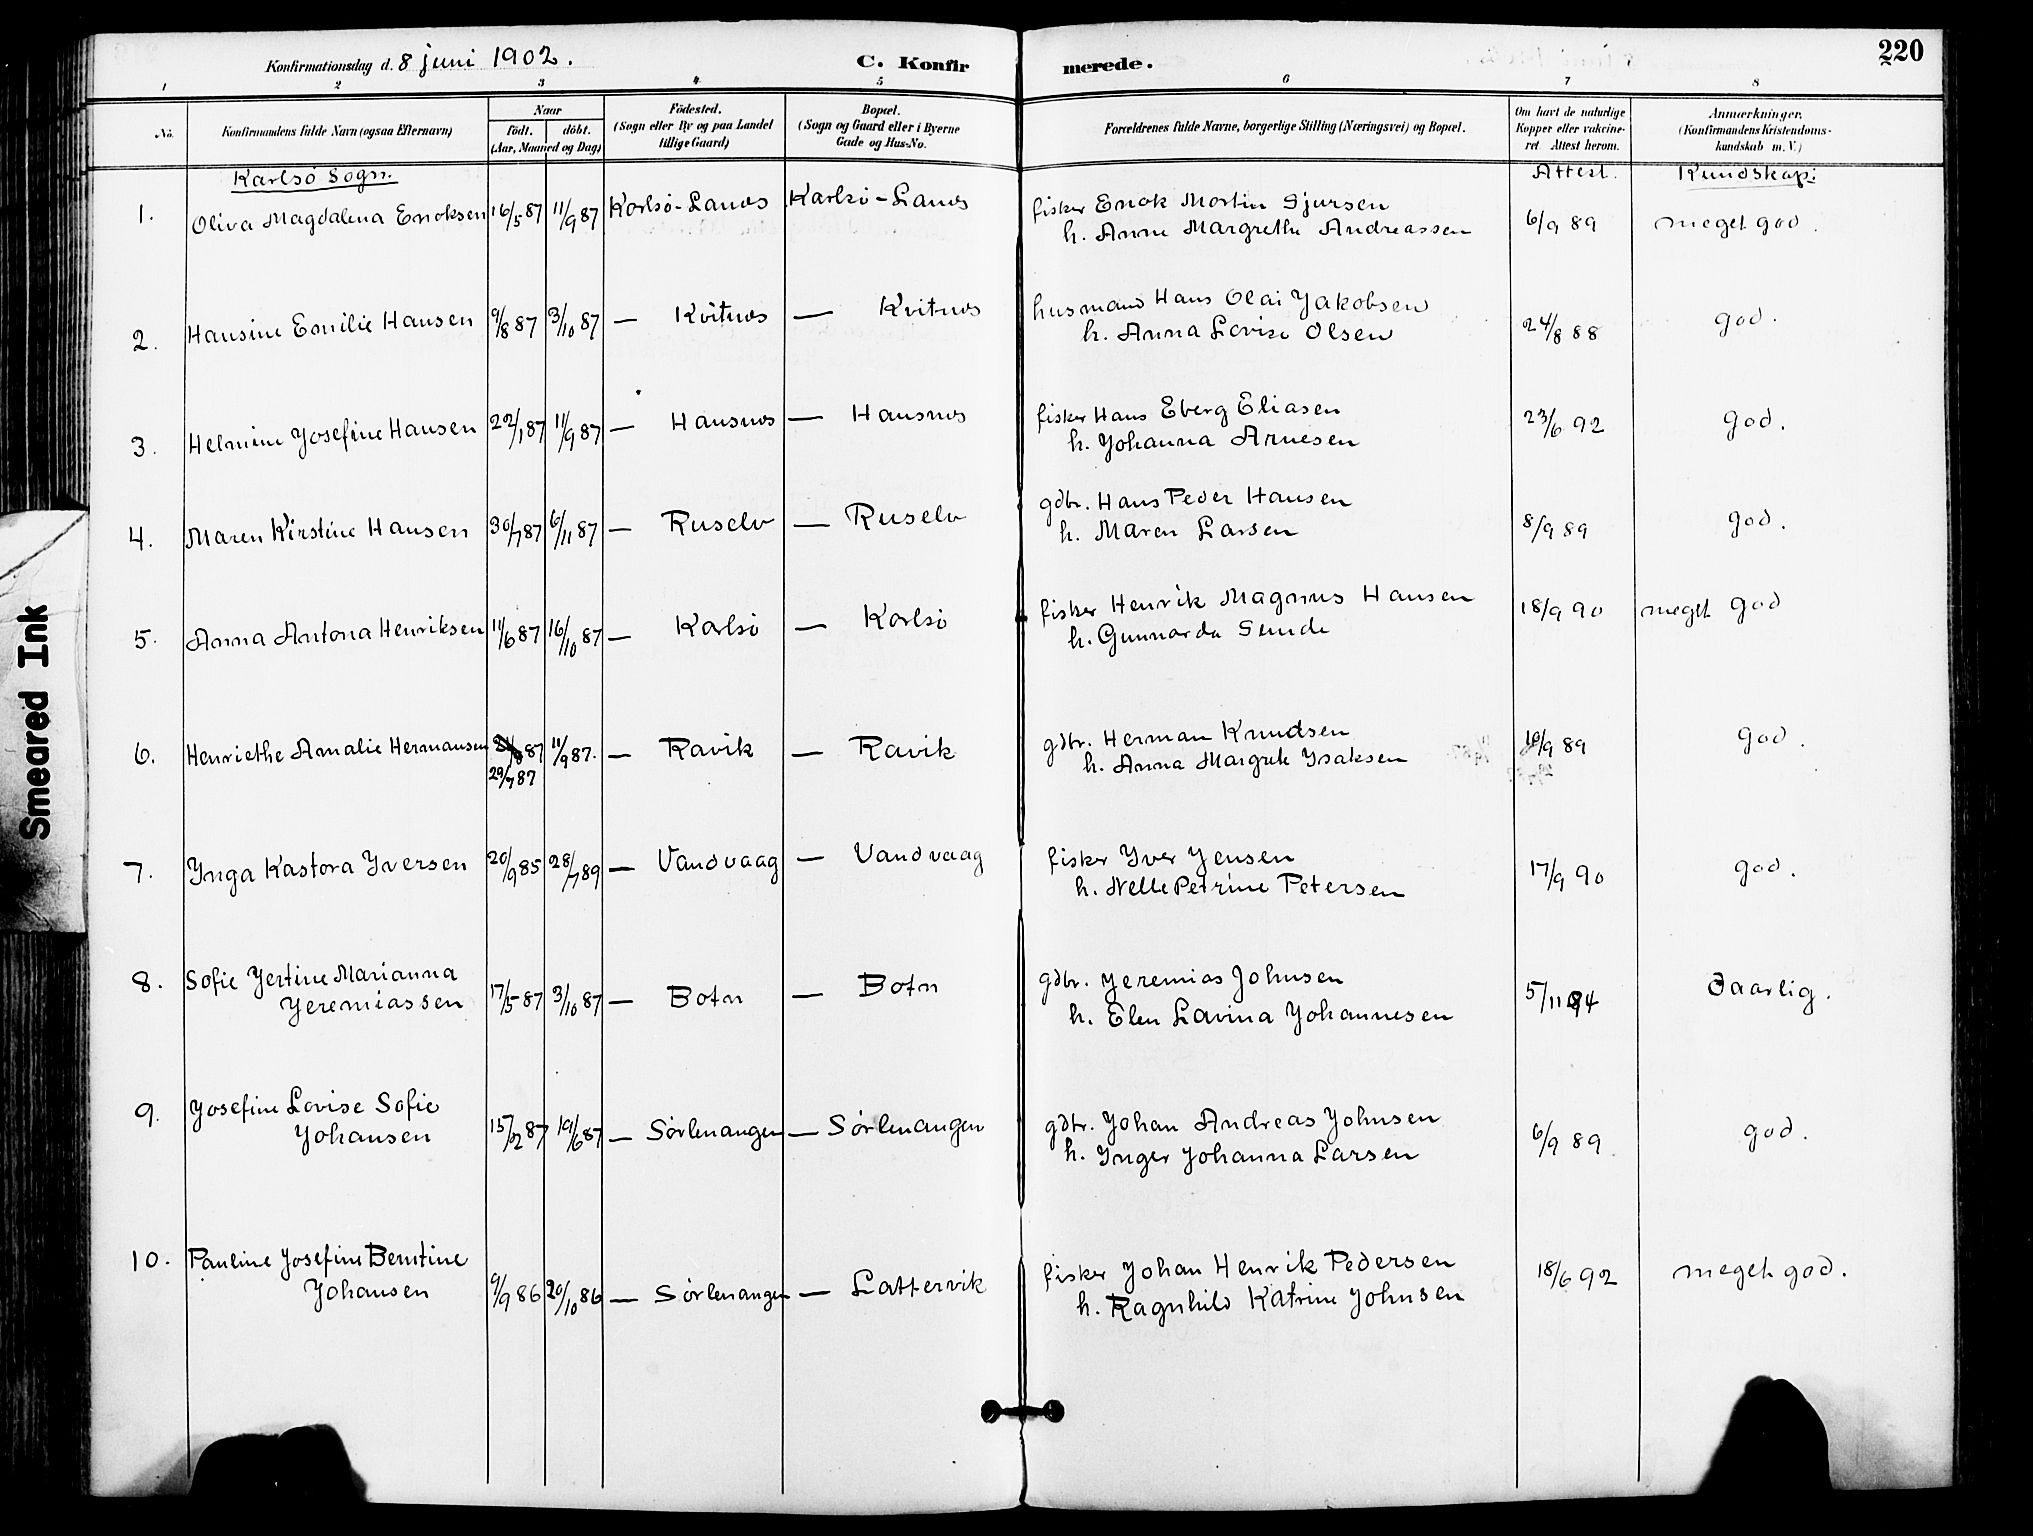 Konfirmationsdag d. 8 juni 1902. C. Konfirmerede. 220
1 2 3 4 5 6 7 8
No. Konfirmandens fulde Navn (ogsaa Efternavn) Naar født. døbt. (Aar, Maaned og Dag) Födested. (Sogn eller By og paa Landet tillige Gaard) Bopæl. (Sogn og Gaard eller i Byerne Gade og Hus-No. Forældrenes fulde Navne, borgerlige Stilling (Næringsvei) og Bopæl. Om havt de naturlige Kopper eller vakcineret. Attest herom. Anmærkninger. (Konfirmandens Kristendomskundskab m. V.)
Karlsö Sogn. Attest. Kundskap:
1. Oliva Magdalena Enoksen 16/5 87 11/9 87 Karlsö - Lanes Karlsö - Lanes fisker Enok Martin Sjursen 6/9 89 meget god.
h. Anne Margrethe Andreassen
2. Hansine Emilie Hansen 9/8 87 3/10 87 — Kvitnes — Kvitnes husmand Hans Olai Jakobsen 24/8 88 god.
h. Anna Lovise Olsen
3. Helmine Josefine Hansen 22/1 87 11/9 87 — Hansnes — Hansnes fisker Hans Eberg Eliasen 23/6 92 god.
h. Johanna Arnesen
4. Maren Kirstine Hansen 30/7 87 6/11 87 — Ruselv — Ruselv gdbr. Hans Peder Hansen 8/9 89 god.
h. Maren Larsen
5. Anna Antona Henriksen 11/6 87 16/10 87 — Karlsö — Karlsö fisker Henrik Magnus Hansen 18/9 90 meget god
h. Gunnarda Sunde
6. Henriethe Amalie Hermansen /8 87 11/9 87. — Ravik — Ravik gdbr. Herman Knudsen 10/9 89 god.
29/7 87 h. Anna Margrete Isaksen
7. Inga Kastora Iversen 20/9 85 28/7 89 — Vandvaag — Vandvaag fisker Iver Jensen 17/9 90 god.
h. Nelle Petrine Petersen
8. Sofie Jertine Marianna
Jeremiassen 17/5 87 3/10 87 — Botn — Botn gdbr. Jeremias Johnsen 5/11 94 daarlig.
h. Elen Lavina Johannesen
9. Josefine Lovise Sofie
Johansen 15/02 87 19/6 87 — Sørlenangen — Sørlenangen gdbr. Johan Andreas Johnsen 6/9 89. god.
h. Inger Johanna Larsen
10. Pauline Josefine Berntine
Johansen 9/9 86 20/10 86 — Sørlenangen — Lattervik fisker Johan Henrik Pedersen 18/6 92 meget god.
h. Ragnhild Katrine Johnsen
Smeared Ink